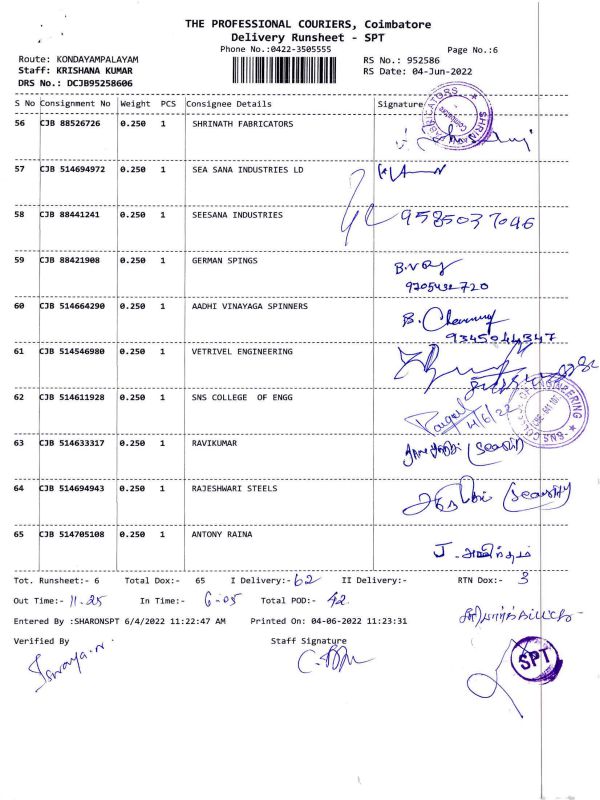 THE PROFESSIONAL COURIERS, Coimbatore
Delivery Runsheet - SPT
Phone No.:0422-3505555
Page No.:6
Route: KONDAYAMPALAYAM
RS No.: 952586
Staff: KRISHANA KUMAR
RS Date: 04-Jun-2022
DRS No.: DCJB95258606
S No Consignment No Weight PCS Consignee Details Signature
56 CJB 88526726 0.250 1 SHRINATH FABRICATORS
57 CJB 514694972 0.250 1 SEA SANA INDUSTRIES LD
58 CJB 88441241 0.250 1 SEESANA INDUSTRIES
9585037046
59 CJB 88421908 0.250 1 GERMAN SPINGS
60 CJB 514664290 0.250 1 AADHI VINAYAGA SPINNERS
9345044347
61 CJB 514546980 0.250 1 VETRIVEL ENGINEERING
62 CJB 514611928 0.250 1 SNS COLLEGE OF ENGG
4/6/22
63 CJB 514633317 0.250 1 RAVIKUMAR
64 CJB 514694943 0.250 1 RAJESHWARI STEELS
65 CJB 514705108 0.250 1 ANTONY RAINA
Tot. Runsheet:- 6 Total Dox:- 65 I Delivery:- 62 II Delivery:- RTN Dox:- 3
Out Time:- 11.25 In Time:- 6-05 Total POD:- 42
Entered By :SHARONSPT 6/4/2022 11:22:47 AM Printed On: 04-06-2022 11:23:31
Verified By Staff Signature
SPT